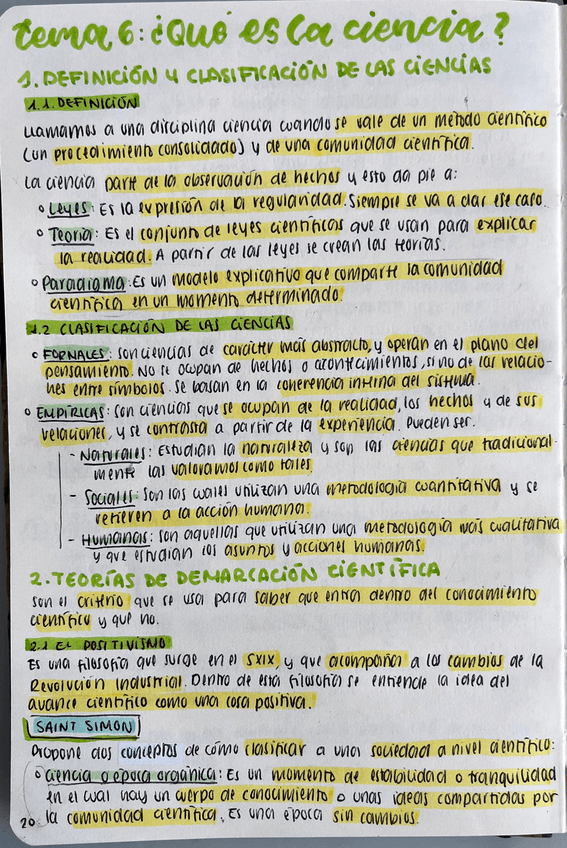 tema 6: ¿Qué es la ciencia?
1. DEFINICIÓN Y CLASIFICACIÓN DE LAS CIENCIAS
1.1. DEFINICIÓN
Llamamos a una disciplina ciencia cuando se vale de un método científico
(un procedimiento consolidado) y de una comunidad científica.
La ciencia parte de la observación de hechos y esto da pie a:
◦ Leyes: Es la expresión de la regularidad. Siempre se va a dar ese caso.
◦ Teoría: Es el conjunto de leyes científicas que se usan para explicar
la realidad. A partir de las leyes se crean las teorías.
◦ Paradigma: Es un modelo explicativo que comparte la comunidad
científica en un momento determinado.
1.2 CLASIFICACIÓN DE LAS CIENCIAS
◦ FORMALES: son ciencias de carácter más abstracto, y operan en el plano del
pensamiento. No se ocupan de hechos o acontecimientos, si no de las relacio-
nes entre símbolos. Se basan en la coherencia interna del sistema.
◦ EMPÍRICAS: son ciencias que se ocupan de la realidad, los hechos y de sus
relaciones, y se contrasta a partir de la experiencia. Pueden ser:
- Naturales: Estudian la naturaleza y son las ciencias que tradicional-
mente las valoramos como tales.
- Sociales: Son las cuales utilizan una metodología cuantitativa y se
refieren a la acción humana.
- Humanas: son aquellas que utilizan una metodología más cualitativa
y que estudian los asuntos y acciones humanas.
2. TEORÍAS DE DEMARCACIÓN CIENTÍFICA
Son el criterio que se usa para saber que entra dentro del conocimiento
científico y que no.
2.1 EL POSITIVISMO
Es una filosofía que surge en el SXIX, y que acompañan a los cambios de la
Revolución Industrial. Dentro de esta filosofía se entiende la idea del
avance científico como una cosa positiva.
SAINT SIMON
Propone dos conceptos de cómo clasificar a una sociedad a nivel científico:
◦ Ciencia o época orgánica: Es un momento de estabilidad o tranquilidad
en el cual hay un cuerpo de conocimiento o unas ideas compartidas por
la comunidad científica. Es una época sin cambios.
20